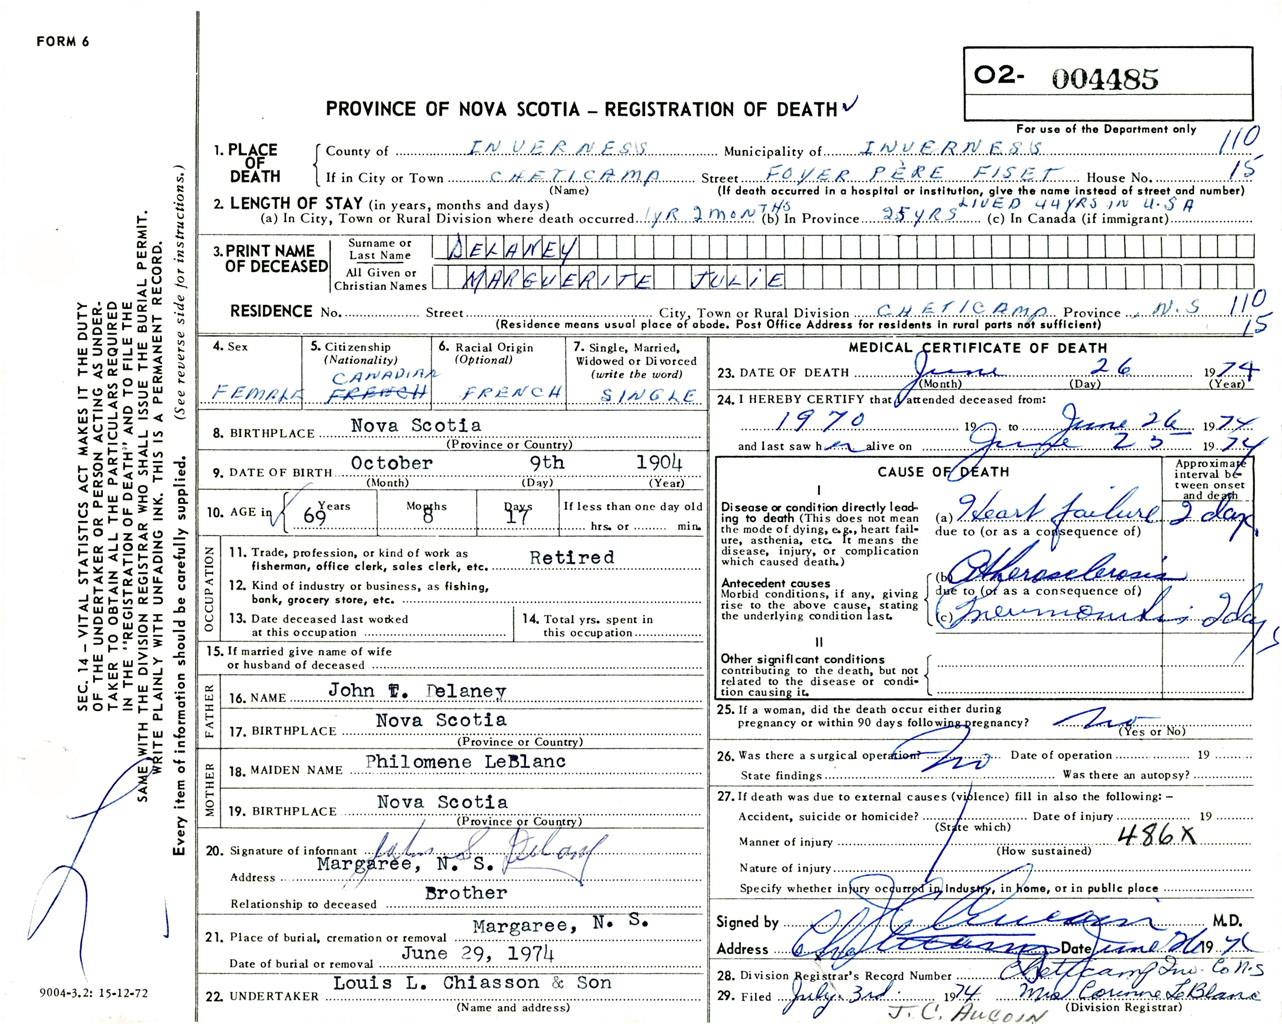 FORM 6
O2- 004485
PROVINCE OF NOVA SCOTIA – REGISTRATION OF DEATH
For use of the Department only
1. PLACE OF DEATH
County of INVERNESS Municipality of INVERNESS 110
If in City or Town CHETICAMP Street FOYER PÈRE FISET House No. 15
(Name) (If death occurred in a hospital or institution, give the name instead of street and number)
2. LENGTH OF STAY (in years, months and days) LIVED 44 YRS IN U.S.A
(a) In City, Town or Rural Division where death occurred 1 YR 2 MONTHS (b) In Province 25 YRS (c) In Canada (if immigrant)
3. PRINT NAME OF DECEASED
Surname or Last Name DELANEY
All Given or Christian Names MARGUERITE JULIE
RESIDENCE No. Street City, Town or Rural Division CHETICAMP Province N.S 110
(Residence means usual place of abode. Post Office Address for residents in rural parts not sufficient) 15
4. Sex
FEMALE
5. Citizenship
(Nationality)
CANADIAN
FRENCH
6. Racial Origin
(Optional)
FRENCH
7. Single, Married,
Widowed or Divorced
(write the word)
SINGLE
8. BIRTHPLACE Nova Scotia
(Province or Country)
9. DATE OF BIRTH October 9th 1904
(Month) (Day) (Year)
10. AGE in Years Months Days If less than one day old
69 8 17 hrs. or min.
OCCUPATION
11. Trade, profession, or kind of work as
fisherman, office clerk, sales clerk, etc. Retired
12. Kind of industry or business, as fishing,
bank, grocery store, etc.
13. Date deceased last worked
at this occupation
14. Total yrs. spent in
this occupation
15. If married give name of wife
or husband of deceased
FATHER
16. NAME John T. Delaney
17. BIRTHPLACE Nova Scotia
(Province or Country)
MOTHER
18. MAIDEN NAME Philomene LeBlanc
19. BIRTHPLACE Nova Scotia
(Province or Country)
20. Signature of informant John S Delaney
Address Margaree, N. S.
Relationship to deceased Brother
21. Place of burial, cremation or removal Margaree, N. S.
Date of burial or removal June 29, 1974
22. UNDERTAKER Louis L. Chiasson & Son
(Name and address)
MEDICAL CERTIFICATE OF DEATH
23. DATE OF DEATH June 26 1974
(Month) (Day) (Year)
24. I HEREBY CERTIFY that I attended deceased from:
1970 19 to June 26 1974
and last saw her alive on June 25 1974
CAUSE OF DEATH
Approximate interval between onset and death
I
Disease or condition directly leading to death (This does not mean the mode of dying, e.g., heart failure, asthenia, etc. It means the disease, injury, or complication which caused death.)
(a) Heart failure 2 days
due to (or as a consequence of)
Antecedent causes
Morbid conditions, if any, giving rise to the above cause, stating the underlying condition last.
(b) Atherosclerosis
due to (or as a consequence of)
(c) 2 days
II
Other significant conditions
contributing to the death, but not related to the disease or condition causing it.
25. If a woman, did the death occur either during
pregnancy or within 90 days following pregnancy? no
(Yes or No)
26. Was there a surgical operation? no Date of operation 19
State findings Was there an autopsy?
27. If death was due to external causes (violence) fill in also the following: –
Accident, suicide or homicide? Date of injury 19
(State which)
Manner of injury 486X
(How sustained)
Nature of injury
Specify whether injury occurred in Industry, in home, or in public place
Signed by J C Aucoin M.D.
Address Date June 26 1974
28. Division Registrar's Record Number Cheticamp Inv. Co N.S
29. Filed July 3rd. 1974 Mrs Corinne LeBlanc
(Division Registrar)
J. C. AUCOIN
SEC. 14 – VITAL STATISTICS ACT MAKES IT THE DUTY
OF THE UNDERTAKER OR PERSON ACTING AS UNDER-
TAKER TO OBTAIN ALL THE PARTICULARS REQUIRED
IN THE "REGISTRATION OF DEATH" AND TO FILE THE
SAME WITH THE DIVISION REGISTRAR WHO SHALL ISSUE THE BURIAL PERMIT.
WRITE PLAINLY WITH UNFADING INK. THIS IS A PERMANENT RECORD.
Every item of information should be carefully supplied. (See reverse side for instructions.)
9004-3.2: 15-12-72